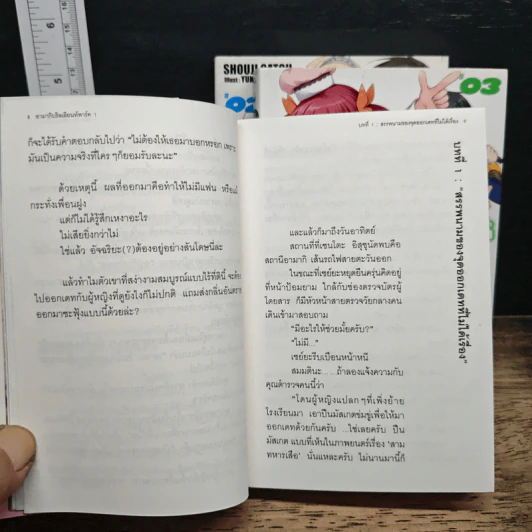 5
SHOUJI GATOU
Illust
02
03
4 อามากิบริลเลียนท์พาร์ค 1
ก็จะได้รับคำตอบกลับไปว่า "ไม่ต้องให้เธอมาบอกหรอก เพราะ
มันเป็นความจริงที่ใครๆก็ยอมรับละนะ"
ด้วยเหตุนี้ ผลที่ออกมาคือทำให้ไม่มีแฟน หรือแม้
กระทั่งเพื่อนฝูง
แต่ก็ไม่ได้รู้สึกเหงาอะไร
ไม่เสียยิ่งกว่าไม่
ใช่แล้ว อัจฉริยะ(?)ต้องอยู่อย่างสันโดษนี่ละ
แล้วทำไมตัวเขาที่สง่างามสมบูรณ์แบบไร้ที่ตินี้ จะต้อง
ไปออกเดทกับผู้หญิงที่ดูยังไงก็ไม่ปกติ แถมส่งกลิ่นอันตราย
ออกมาซะฟุ้งแบบนี้ด้วยล่ะ?
บทที่ 1 : สรรพนามของจุดออกเดทที่ไม่ได้เรื่อง 5
บทที่ 1 : "สรรพนามของจุดออกเดทที่ไม่ได้เรื่อง"
และแล้วก็มาถึงวันอาทิตย์
สถานที่ที่เซนโตะ อิสุซุนัดพบคือ
สถานีอามากิ เส้นรถไฟสายตะวันออก
ในขณะที่เซย์ยะหยุดยืนครุ่นคิดอยู่
ที่หน้าป้อมยาม ใกล้กับช่องตรวจบัตรผู้
โดยสาร ก็มีหัวหน้าสายตรวจวัยกลางคน
เดินเข้ามาสอบถาม
"มีอะไรให้ช่วยมั้ยครับ?"
"ไม่มี..."
เซย์ยะรีบเบือนหน้าหนี
สมมตินะ.....ถ้าลองแจ้งความกับ
คุณตำรวจคนนี้ว่า
"โดนผู้หญิงแปลกๆที่เพิ่งย้าย
โรงเรียนมา เอาปืนมัสเกตข่มขู่เพื่อให้มา
ออกเดทด้วยกันครับ ...ใช่เลยครับ ปืน
มัสเกต แบบที่เห็นในภาพยนตร์เรื่อง 'สาม
ทหารเสือ' นั่นแหละครับ ไม่นานมานี้ก็